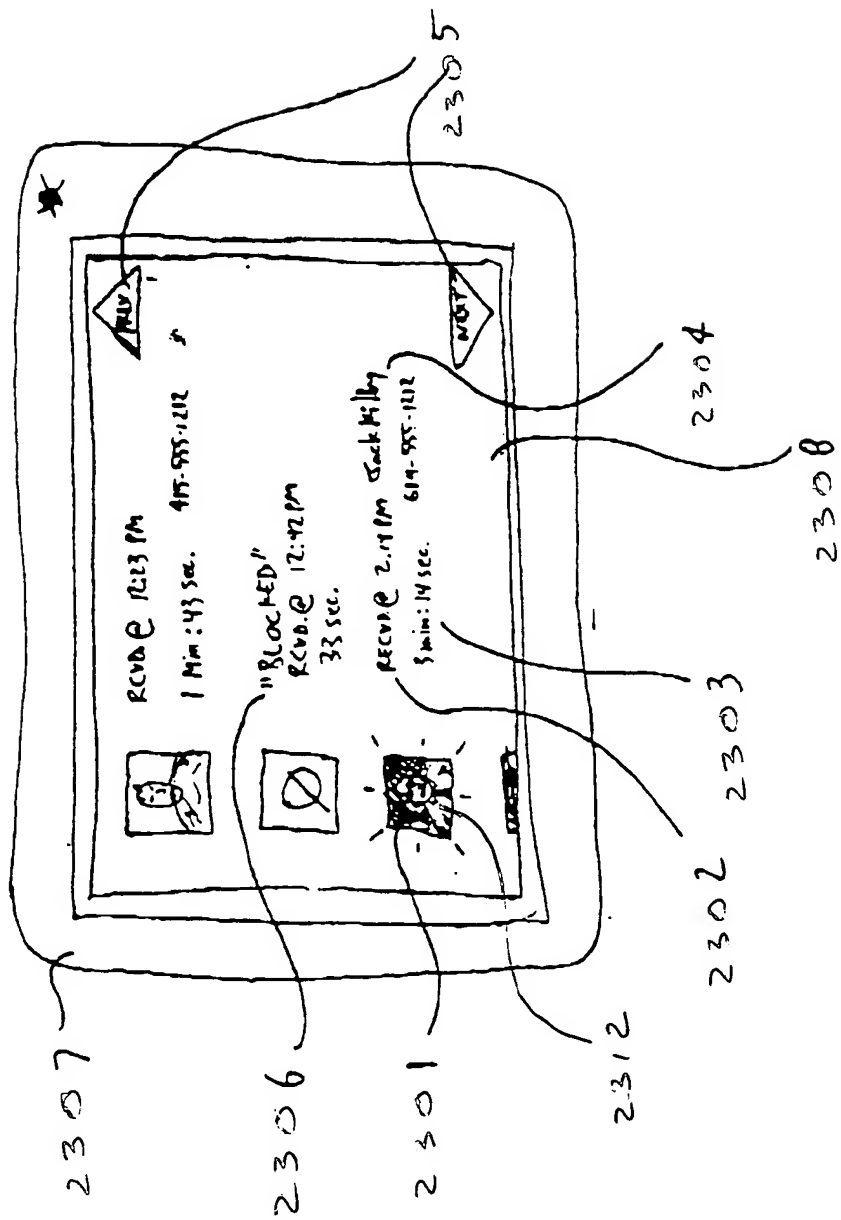 2307
2306
2301
2312
2302
2303
2308
2304
2305
RCVD @ 12:23 PM
1 Min : 43 sec. 415-555-1212
"BLOCKED"
RCVD. @ 12:42 PM
33 sec.
RECVD @ 2:14 PM Jack Kilby
3 min : 14 sec. 614-555-1212
NEXT